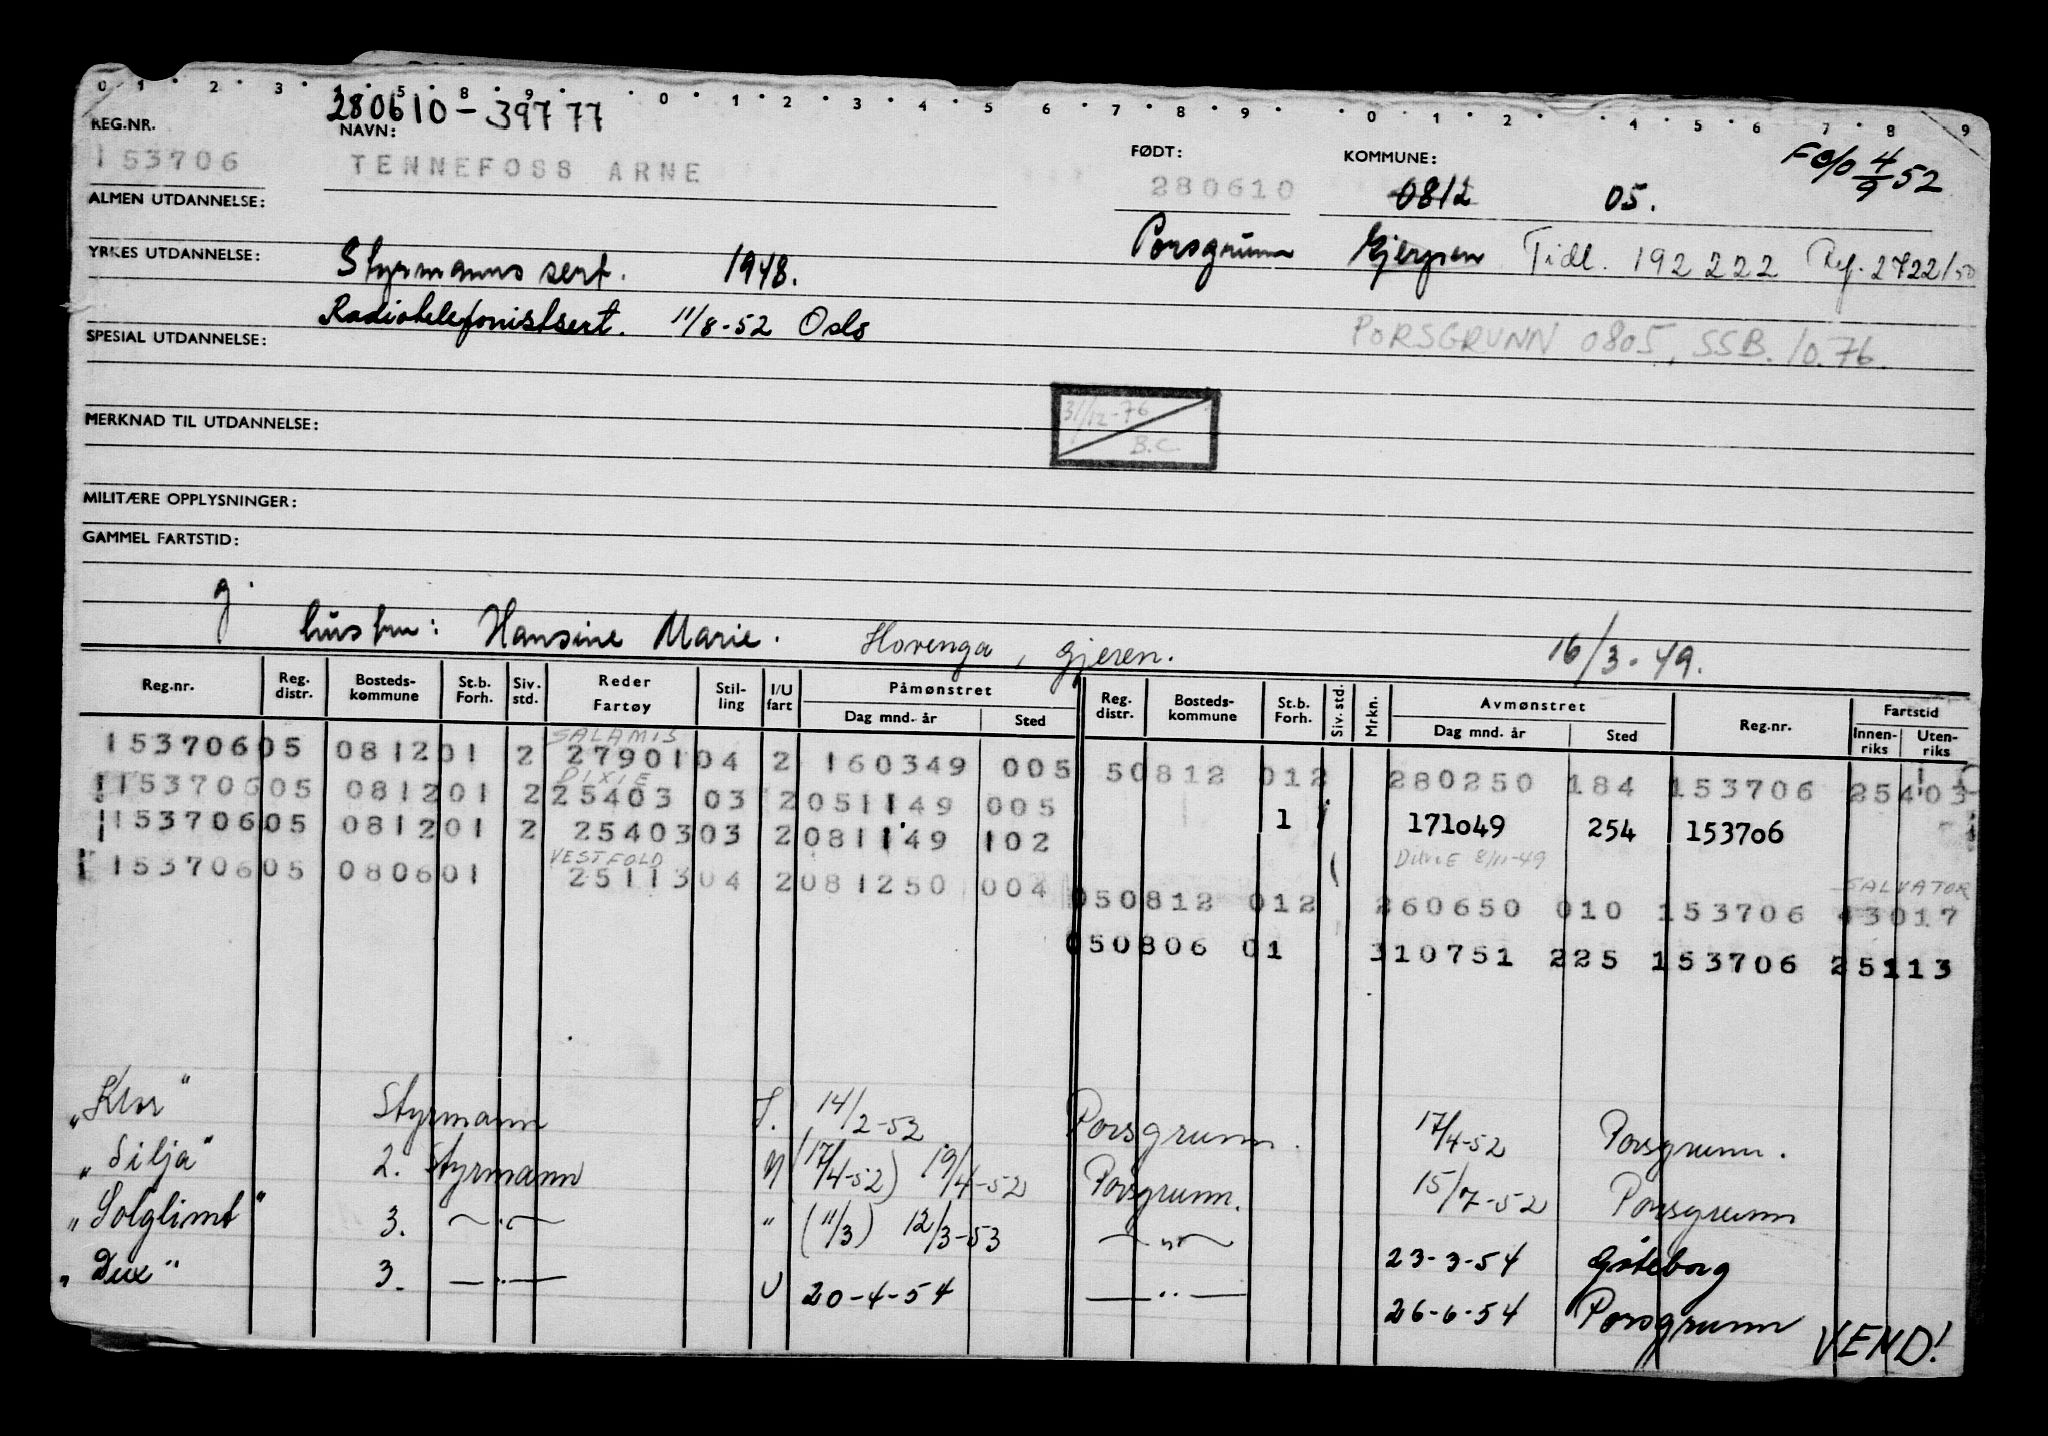 0 1 2 3 4 5 8 9 0 1 2 3 4 5 6 7 8 9 0 1 2 4 5 6 7 8 9
280610-39777
REG.NR. NAVN: FØDT: KOMMUNE: 4/9 52
153706 TENNEFOSS ARNE 280610 0812 05.
ALMEN UTDANNELSE:
Porsgrunn Gjerpen Tidl. 192 222 Ref. 2722/50
YRKES UTDANNELSE: Styrmanns sert. 1948.
Radiotelefonistsert. 11/8-52 Oslo
PORSGRUNN 0805, SSB. 10.76.
SPESIAL UTDANNELSE:
31/12-76
B.C
MERKNAD TIL UTDANNELSE:
MILITÆRE OPPLYSNINGER:
GAMMEL FARTSTID:
g.
hustru: Hansine Marie. Hovenga, Gjeren. 16/3-49.
Reg.nr. Reg. distr. Bosteds- kommune St.b. Forh. Siv. std. Reder Fartøy Stil- ling I/U fart Påmønstret Dag mnd. år Sted Reg. distr. Bosteds- kommune St.b. Forh. Siv. std. Mrkn. Avmønstret Dag mnd. år Sted Reg.nr. Fartstid Innen- riks Uten- riks
SALAMIS
153706 05 0812 01 2 27901 04 2 160349 005 50812 012 280250 184 153706 25403
DIXIE
153706 05 0812 01 2 25403 03 2 051149 005
1 171049 254 153706
153706 05 0812 01 2 25403 03 2 081149 102
VESTFOLD 8/11-49 SALVATOR
153706 05 0806 01 25113 04 2 081250 004 050812 012 260650 010 153706 43017
050806 01 310751 225 153706 25113
"Klor" Styrmann I. 14/2-52 Porsgrunn. 17/4-52 Porsgrunn.
"Silja" 2. Styrmann N (17/4-52) 19/4-52 Porsgrunn. 15/7-52 Porsgrunn
"Solglimt" 3. —"— " (11/3) 12/3-53 —"— 23-3-54 Gøteborg
"Dux" 3. —"— U 20-4-54 —"— 26-6-54 Porsgrunn
VEND!